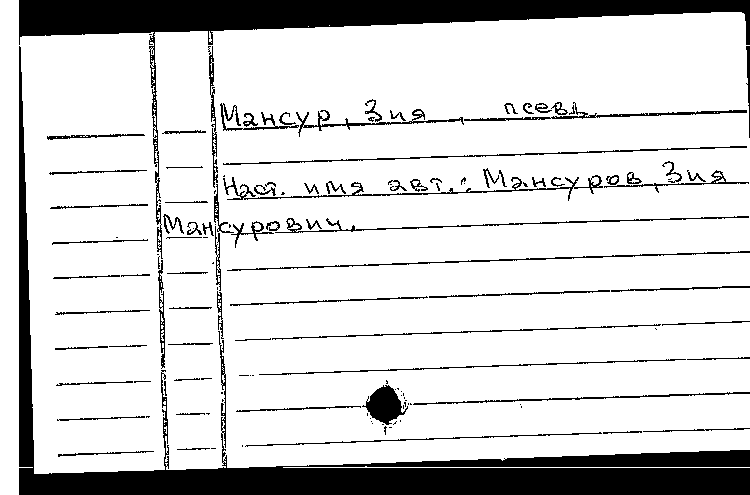 Мансур, Зия, псевд.
Наст. имя авт.: Мансуров, Зия
Мансурович.